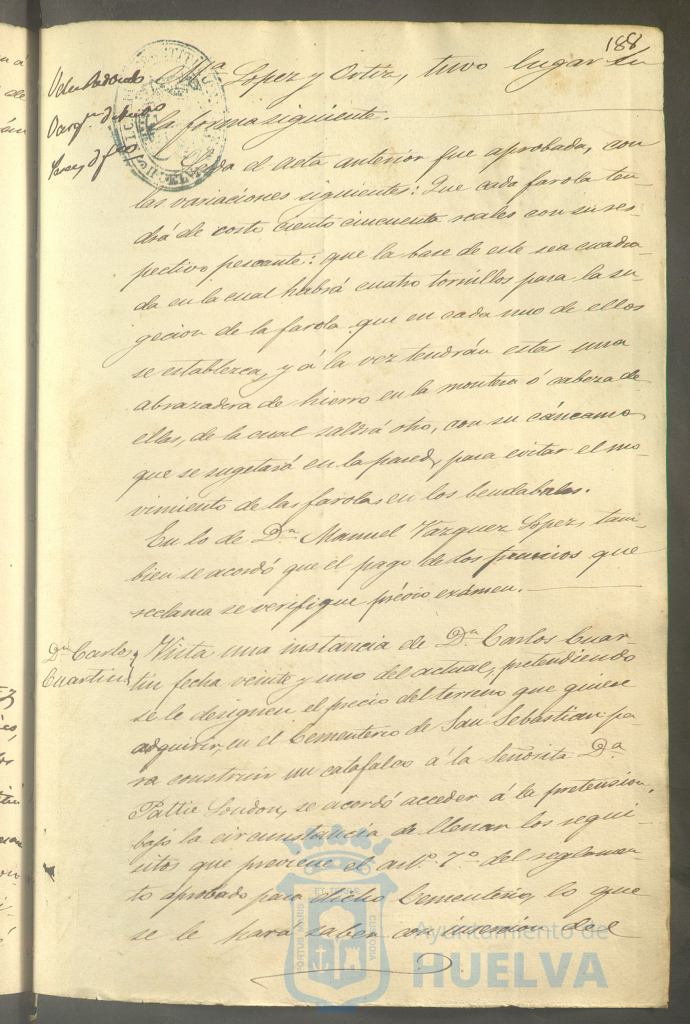 188
Lopez y Ortiz, tuvo lugar en
la forma siguiente.
Leida el acta anterior fue aprobada, con
las variaciones siguientes: Que cada farola ten-
drá de costo ciento cincuenta reales con su res-
pectivo pescante: que la base de este sea cuadra-
da en la cual habrá cuatro tornillos para la su-
gecion de la farola que en cada uno de ellos
se establezca, y á la vez tendrán estas una
abrazadera de hierro en la montera ó cabeza de
ellas, de la cual saldrá otro, con su cáncamo,
que se sugetará en la pared, para evitar el mo-
vimiento de las farolas en los bendabales.
En lo de Dn. Manuel Vazquez Lopez, tam-
bien se acordó que el pago de los precios que
reclama se verifique prévio exámen.
Dn. Carlos
Cuartin
Vista una instancia de Dn. Carlos Cuar-
tin fecha veinte y uno del actual, pretendiendo
se le designen el precio del terreno que quiere
adquirir, en el Cementerio de San Sebastian pa-
ra construir un catafalco á la Señorita Da.
Pattie Soudon, se acordó acceder á la pretension,
bajo la circunstancia de llenar los requi-
sitos que previene el arto. 7o. del reglamen-
to aprobado para dicho Cementerio, lo que
se le hará saber con insercion del
PORTUS MARIS
ET TERRE
CUSTODIA
Ayuntamiento de
HUELVA